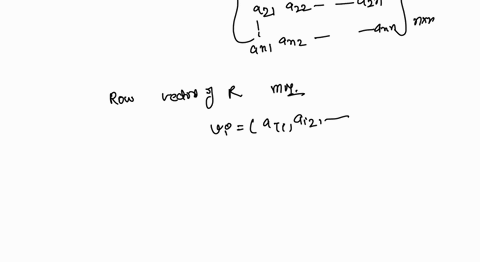 a21 a22 — — a2n
an1 an2 — — ann n×n
Row vector of R
vi = (ai1, ai2, —